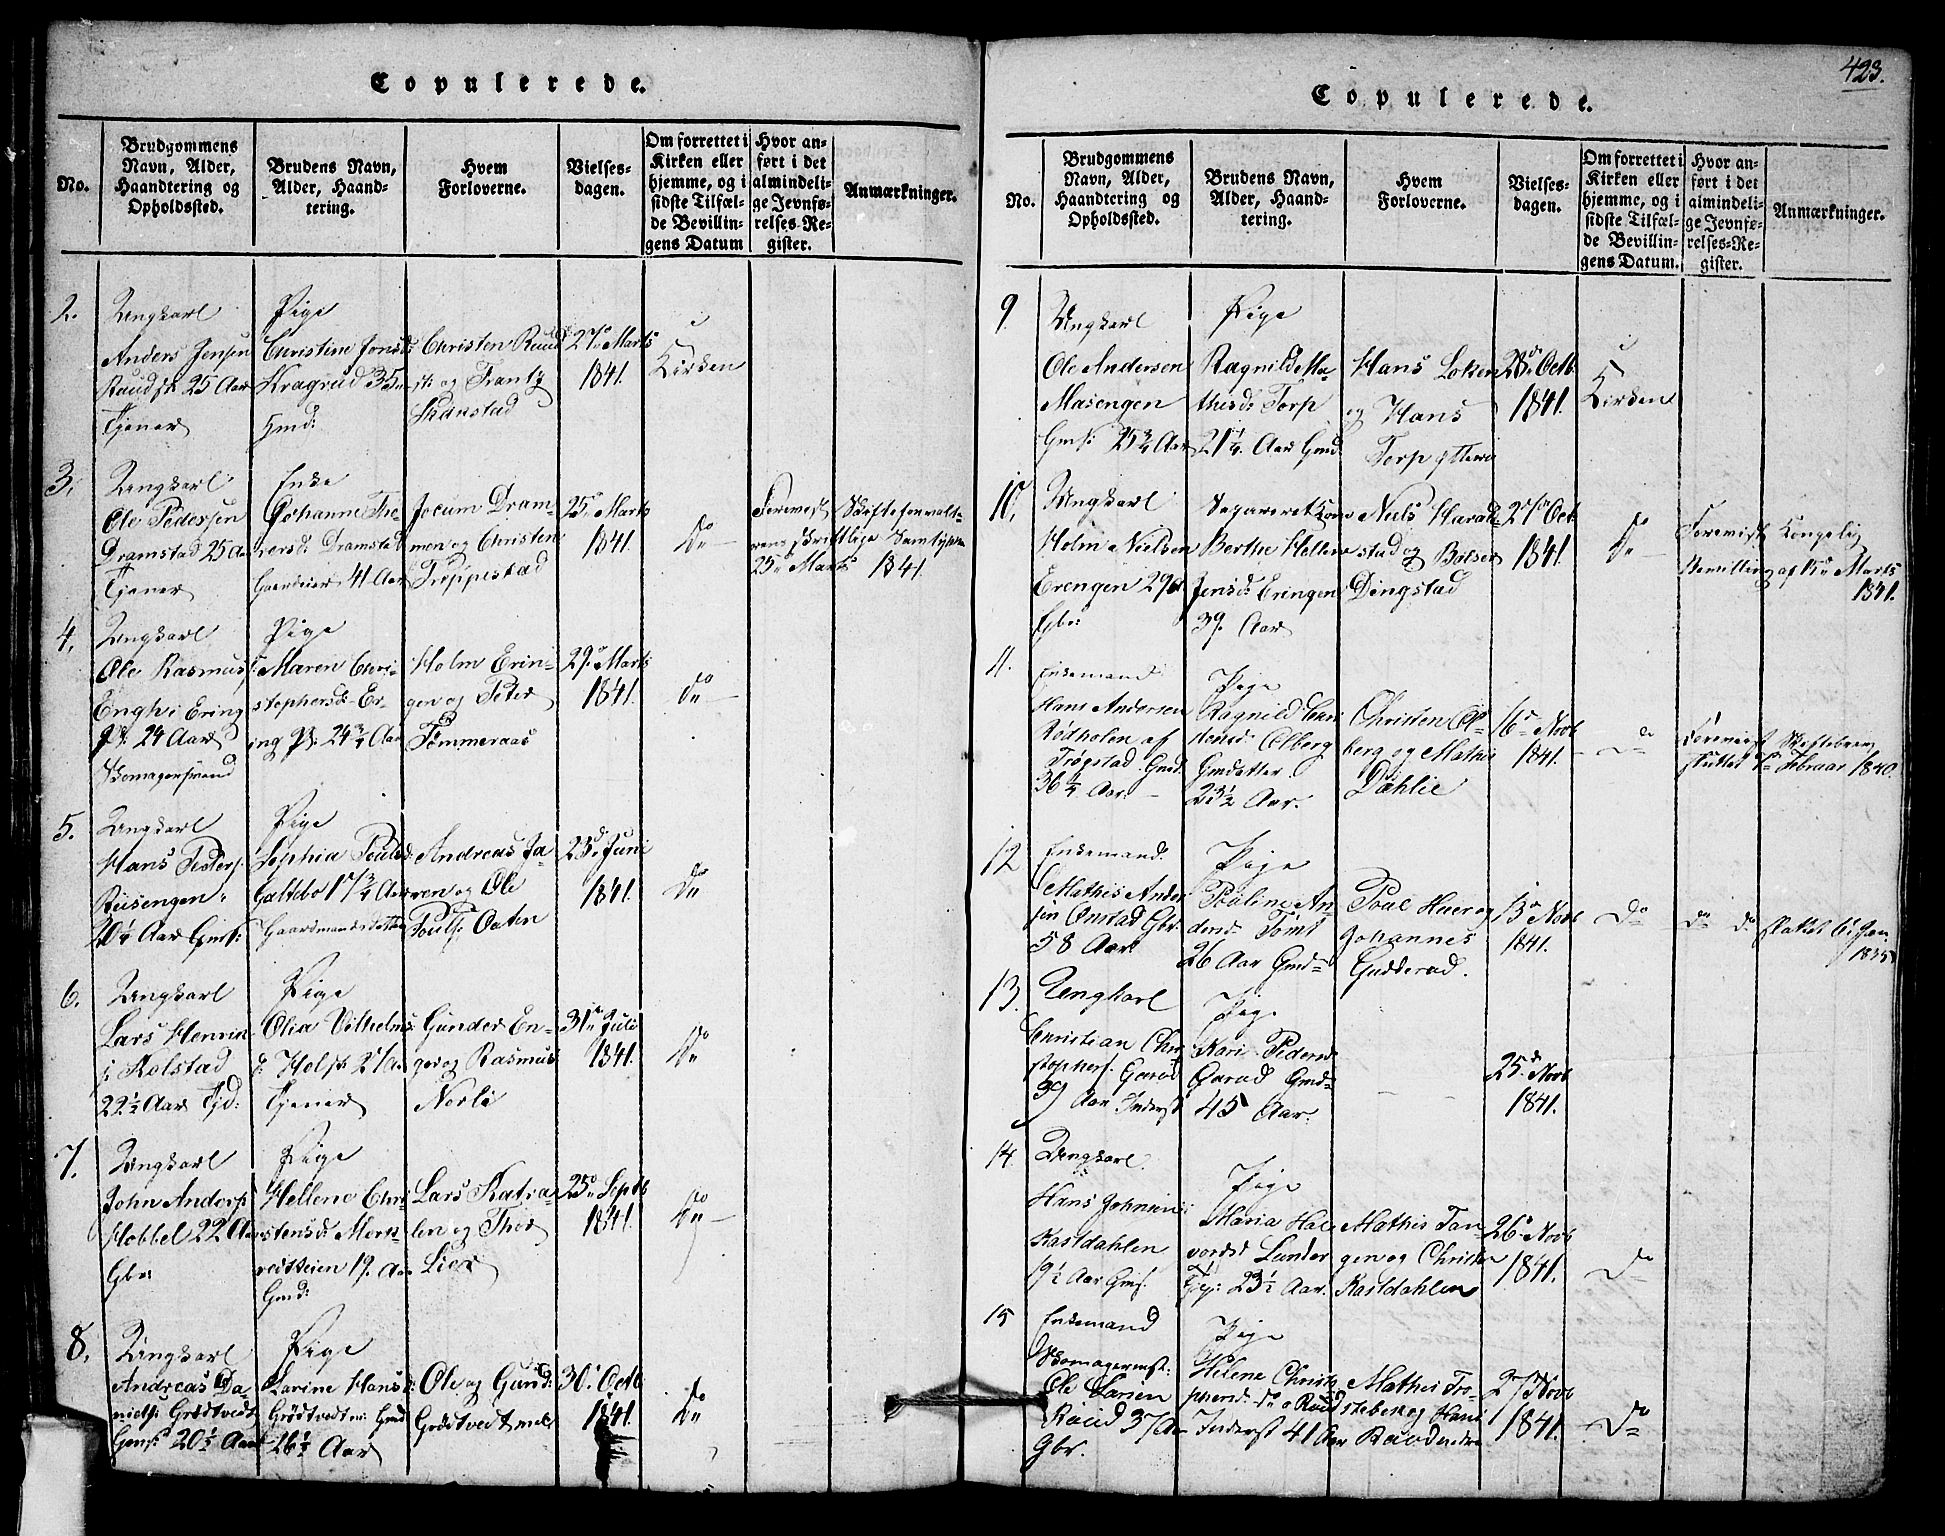 Copulerede.
No.
Brudgommens
Navn, Alder,
Haandtering og
Opholdssted.
Brudens Navn,
Alder, Haand-
tering.
Hvem
Forloverne.
Vielses-
dagen.
Om forrettet i
Kirken eller
hjemme, og i
sidste Tilfæl-
de Bevillin-
gens Datum
Hvor an-
ført i det
almindeli-
ge Jevnfø-
relses-Re-
gister.
Anmærkninger.
2.
Ungkarl
Anders Jensen
25 Aar
Tjener
Pige
Christine
Kragrud 35
Gmd:
Christen Ruud
og Frantz
Skanstad
27 Marts
1841.
i
Kirken
3.
Ungkarl
Ole Pedersen
Dramstad 25 Aar
Tjener
Enke
Johanne The-
rersd: Dramstad
Gaardeier 41 Aar
Jocum Dram-
men og Christen
Trippestad
25 Marts
1841.
Do
Forevist Skifteforvalte-
rens skriftlige Samtykke
25 Marts 1841.
4.
Ungkarl
Ole Rasmus
Engh i Ering
24 Aar
Skomagersvend
Pige
Maren Chri-
stophersd: Er-
ing 24 3/4 Aar
Holm Erin-
gen og Peter
Tømmeraas
29 Marts
1841.
Do
5.
Ungkarl
Hans Peders:
Riisengen
20 1/4 Aar Gms:
Pige
Sophia Pouls
Galtebo 17 3/4 Aar
Gaardmandsdatter
Andreas Ja-
ren og Ole
Pouls:
23 Juni
1841.
Do
6.
Ungkarl
Lars Henrik
Kolstad
22 1/2 Aar
Pige
Olia Vilhelms
Tjener
Gunder En-
ger og Rasmus
Norli
31 Juli
1841.
Do
7.
Ungkarl
John Anders:
Hobbel 22 Aar
Gbr:
Pige
Hellene Chri-
stensd:
19. Aar
Gmd:
Lars Skatra-
len og Thor
Lier
25 Septb
1841.
Do
8.
Ungkarl
Andreas Da-
niels: Grødtvedt
Gms: 20 1/2 Aar
Pige
Karine Hansd:
Grødtvedt Gmd
26 1/2 Aar
Ole og Gund:
Grødtvedt
30 Octb
1841.
Do
423.
Copulerede.
No.
Brudgommens
Navn, Alder,
Haandtering og
Opholdssted.
Brudens Navn,
Alder, Haand-
tering.
Hvem
Forloverne.
Vielses-
dagen.
Om forrettet i
Kirken eller
hjemme, og i
sidste Tilfæl-
de Bevillin-
gens Datum.
Hvor an-
ført i det
almindeli-
ge Jevnfø-
relses-Re-
gister.
Anmærkninger.
9.
Ungkarl
Ole Andersen
Masengen
Gms: 25 3/4 Aar
Pige
Ragnild Ma-
thisd: Torp
21 1/4 Aar Gmd
Hans Løken
og Hans
Torp yttere
28 Octb
1841.
i
Kirken
10.
Ungkarl
Holm Nielsen
Erengen 29
Gbr:
Separeret Kone
Berthe Hellene
Jensd: Eringen
39 Aar
Niels Harald-
stad og
Dingstad
27 Oct
1841.
Do
Forevist Kongelig
Bevilling af Marts
1841.
11.
Enkemand
Hans Andersen
Rødholen af
Trøgstad Gmd.
36 1/4 Aar
Pige
Ragnild Chri-
stensd: Olberg
Gmdatter
23 1/2 Aar.
Christen Ol-
berg og Mathis
Dahlie
16 Novb
1841.
Do
Forevist Skiftebrev
sluttet Februar 1840.
12
Enkemand.
Mathis Ander-
sen Onstad Gbr:
58 Aar
Pige
Pouline An-
dersd: Tomt
26 Aar Gmd
Poul Huer og
Johannes
Gudderud.
13 Novb
1841.
Do
Do Do sluttet 6 Jan.
1835
13.
Ungkarl
Christian Chri-
stophers:
39 Aar Inderst
Pige
Kari Pedersd
Gmd
45 Aar.
25 Novb
1841.
14.
Ungkarl.
Hans Johnsen
Kastdahlen
19 1/2 Aar Gms.
Pige
Maria Hal-
vorsd Lunder
23 1/2 Aar.
Mathis Tan-
gen og Christen
Kastdahlen
26 Novb
1841.
Do
15
Enkemand
Skomagermst:
Ole Larsen
Ruud 37 Aar
Gbr.
Pige
Helene Christo-
phersd: Ruud
Inderst 41 Aar
Mathis Fro-
steberg og Hans
Ruud nedre
27 Novb
1841.
Do